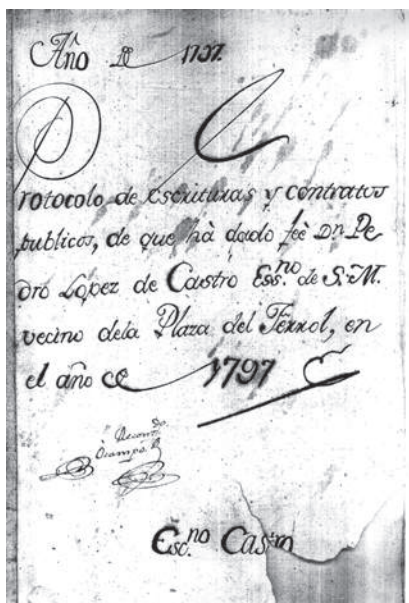 Año de 1797.
Protocolo de escrituras y contratos
publicos, de que hà dado feè Dn. Pe
dro López de Castro Ess.no de S. M.
vecino dela Plaza del Ferrol, en
el año de 1797
Recon.do
Ocampo
Esc.no Castro